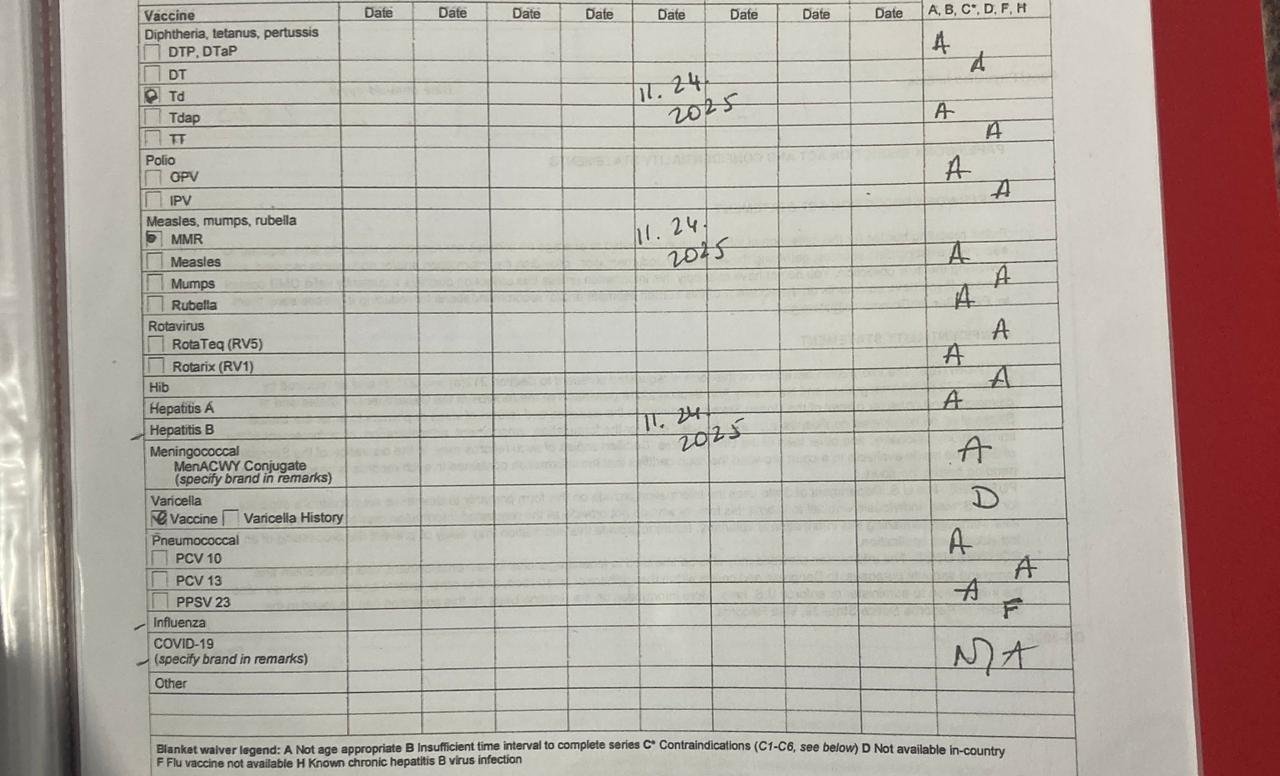 Vaccine Date Date Date Date Date Date Date Date A, B, C*, D, F, H
Diphtheria, tetanus, pertussis
DTP, DTaP A
DT A
Td 11. 24. 2025
Tdap A
TT A
Polio
OPV A
IPV A
Measles, mumps, rubella
MMR 11. 24. 2025
Measles A
Mumps A
Rubella A
Rotavirus
RotaTeq (RV5) A
Rotarix (RV1) A
Hib A
Hepatitis A A
Hepatitis B 11. 24. 2025
Meningococcal
MenACWY Conjugate A
(specify brand in remarks)
Varicella D
Vaccine Varicella History
Pneumococcal
PCV 10 A
PCV 13 A
PPSV 23 A
Influenza F
COVID-19
(specify brand in remarks) N/A
Other
Blanket waiver legend: A Not age appropriate B Insufficient time interval to complete series C* Contraindications (C1-C6, see below) D Not available in-country
F Flu vaccine not available H Known chronic hepatitis B virus infection